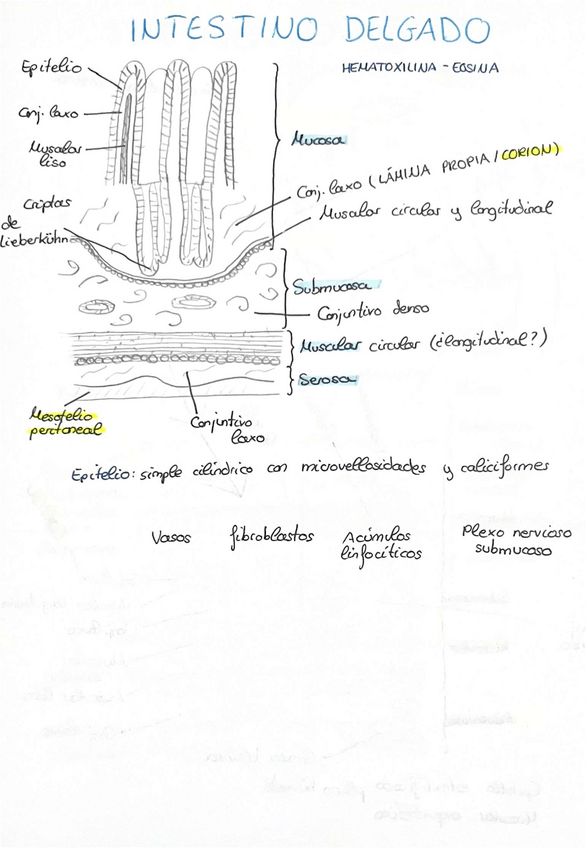 INTESTINO DELGADO
HEMATOXILINA - EOSINA
Epitelio
Conj. laxo
Muscular
liso
Mucosa
Conj. laxo (LÁMINA PROPIA / CORION)
Criptas
de
Lieberkühn
Muscular circular y longitudinal
Submucosa
Conjuntivo denso
Muscular circular (¿longitudinal?)
Serosa
Mesotelio
peritoneal
Conjuntivo
laxo
Epitelio: simple cilíndrico con microvellosidades y caliciformes
Vasos
fibroblastos
Acúmulos
linfocíticos
Plexo nervioso
submucoso